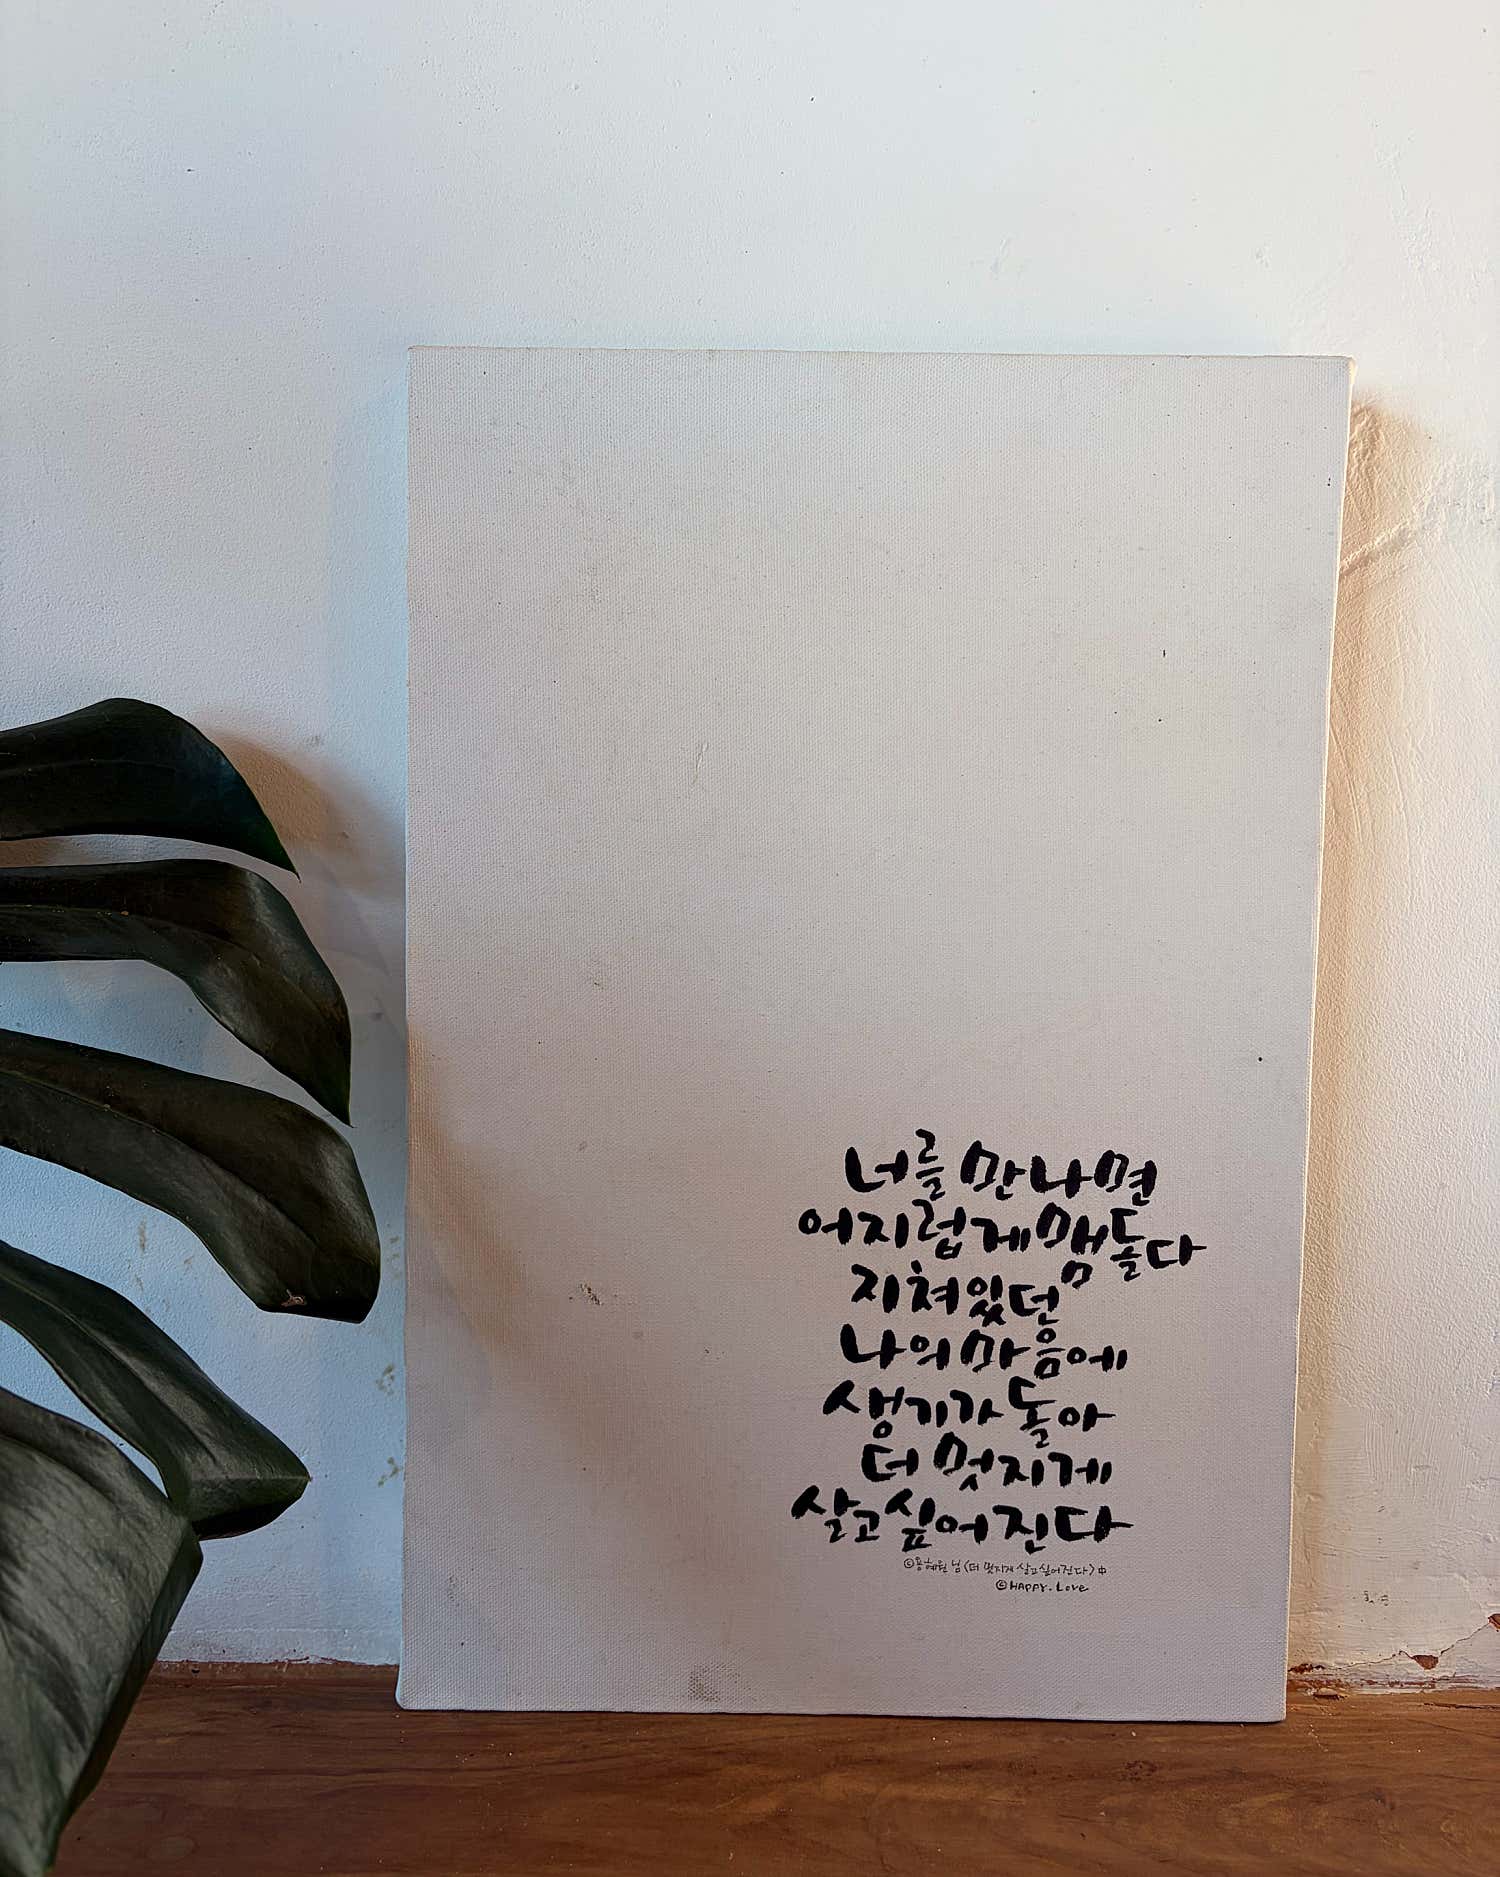 너를 만나면
어지럽게 맴돌다
지쳐있던
나의 마음에
생기가 돌아
더 멋지게
살고 싶어진다
©용혜원 님 <더 멋지게 살고싶어진다> 中
©HAPPY.Love